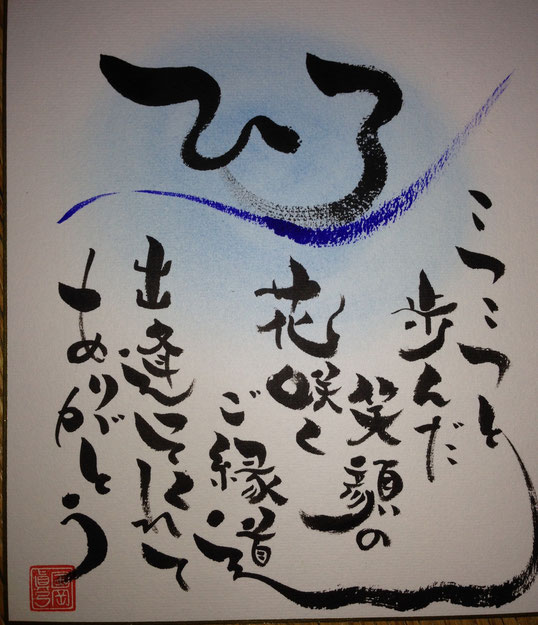 ひろ
こつこつと
歩んだ
笑顔の
花咲く
ご縁道
出逢ってくれて
ありがとう